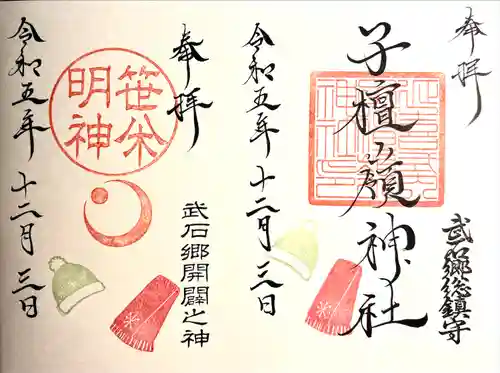 奉拝
武石郷総鎮守
子檀嶺神社
令和五年十二月三日
奉拝
武石郷開闢之神
笹焼
明神
令和五年 十二月 三日